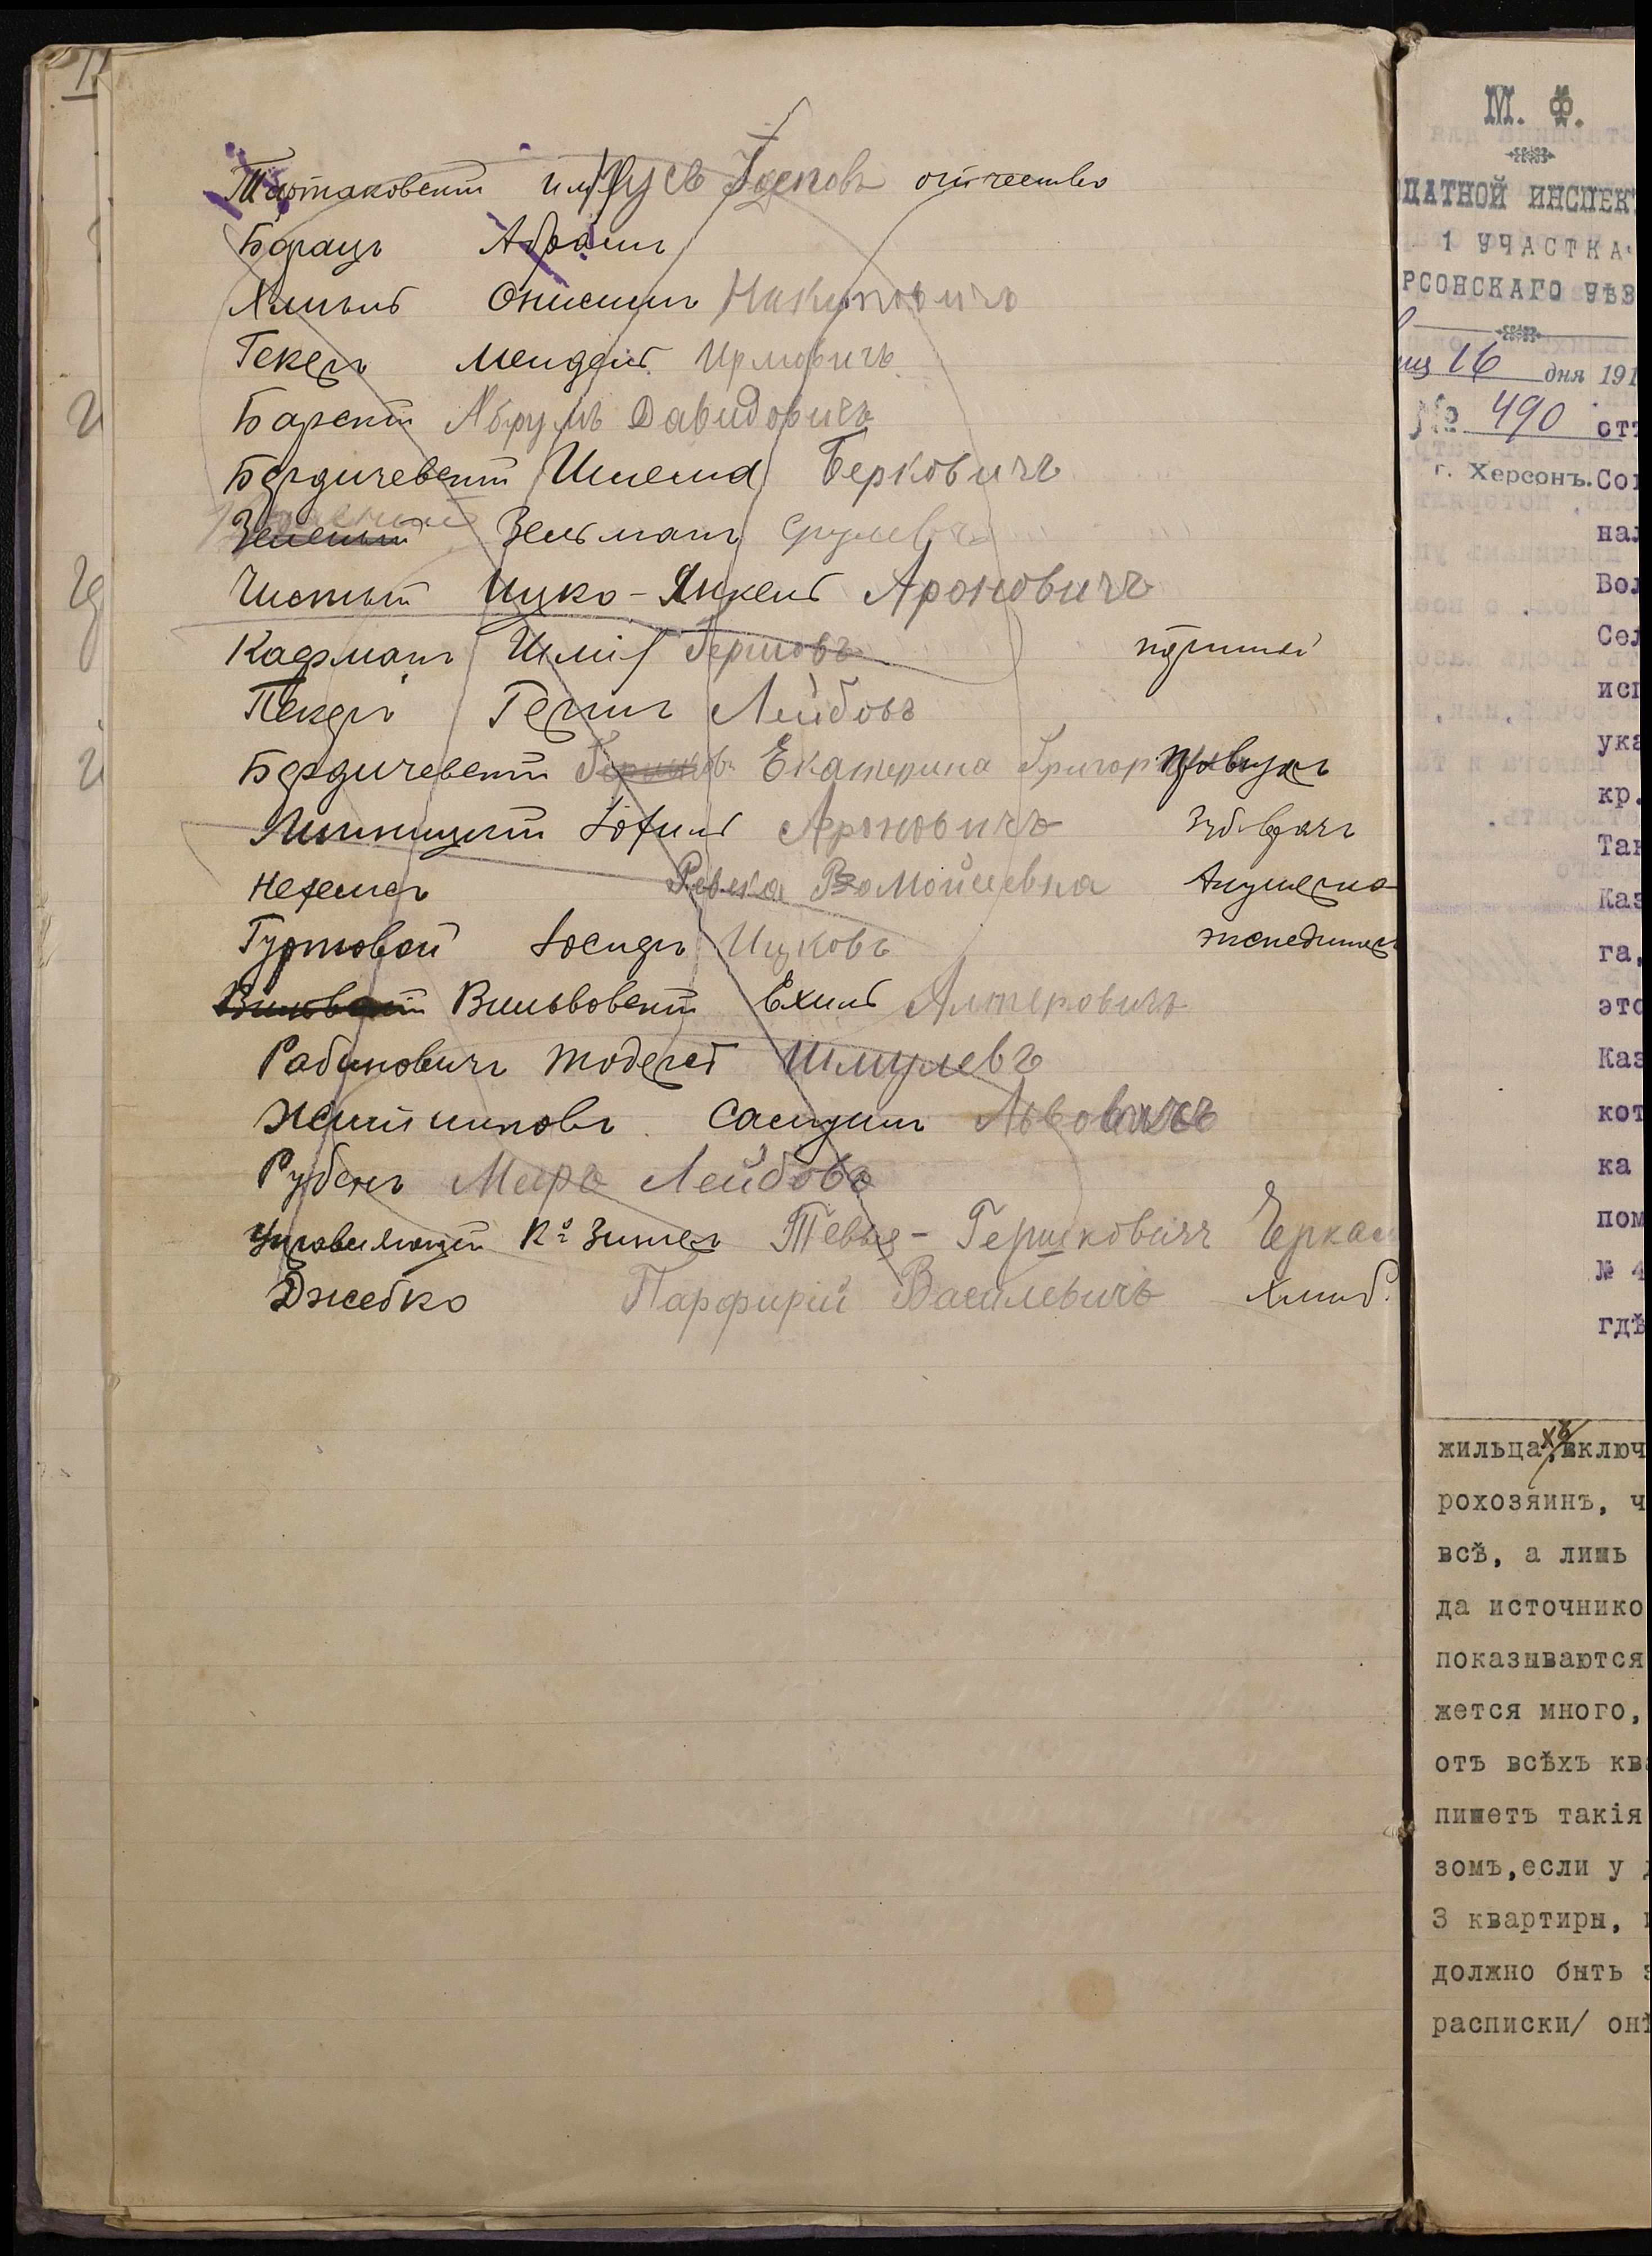 Тартаковскій имя Дусь Іосповъ отчество
Борацъ Абрамъ
Хмель Онисимъ Никитовичъ
Гекеръ Мендель Ирмовичъ
Барскій Абрумъ Давидовичъ
Бердичевскій Шлема Берковичъ
Зеленый Зельманъ Срулевъ
Чистый Ицко-Янкель Ароновичъ
Кафманъ Шлі Гершовъ портной
Пекеръ Гершъ Лейбовъ
Бердичевскій Гершковъ Екатерина Григор провизоръ
Линницкій Іохиль Ароновичъ Зуб. врачъ
Нехемеръ Ревека Мойсеевна Акушерка
Гуртовой Іосифъ Ицковъ экспедиторъ
Вильвовскій Ехиль Алтеровичъ
Рабиновичъ Тодересъ Шмулевъ
Житниковъ Самуилъ Львовичъ
Рубенъ Меиръ Лейбовъ
Управляющій Ко Зингеръ Тевье-Гершковичъ Черкас
Джебко Парфирій Василевичъ
М. Ф.
ПАТНОЙ ИНСПЕК
1 УЧАСТКА
РСОНСКАГО УѢЗ
16 дня 191
№ 490
г. Херсонъ.
отт
Сог
нал
Вол
Сел
исп
ука
кр.
Так
Каз
га,
это
Каз
кот
ка
пом
№ 4
гдѣ
жильцахъ, включ
рохозяинъ, ч
всѣ, а лишь
да источнико
показываются
жется много,
отъ всѣхъ ква
пишетъ такія
зомъ, если у
3 квартиры,
должно быть з
расписки/ онѣ